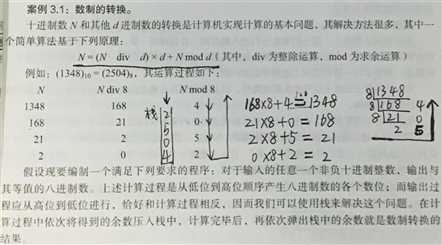 案例 3.1：数制的转换。
十进制数 N 和其他 d 进制数的转换是计算机实现计算的基本问题，其解决方法很多，其中一
个简单算法基于下列原理：
N = (N div d)×d + N mod d（其中，div 为整除运算，mod 为求余运算）
例如：(1348)₁₀ = (2504)₈，其运算过程如下：
N N div 8 N mod 8
1348 168 4
168 21 0
21 2 5
2 0 2
栈
2
5
0
4
168×8+4=1348
21×8+0=168
2×8+5=21
0×8+2=2
8 1348
8 168 4
8 21 0
2 5
假设现要编制一个满足下列要求的程序：对于输入的任意一个非负十进制整数，输出与
其等值的八进制数。上述计算过程是从低位到高位顺序产生八进制数的各个数位；而输出过
程应从高位到低位进行，恰好和计算过程相反，因而我们可以使用栈来解决这个问题。在计
算过程中依次将得到的余数压入栈中，计算完毕后，再依次弹出栈中的余数就是数制转换的
结果。